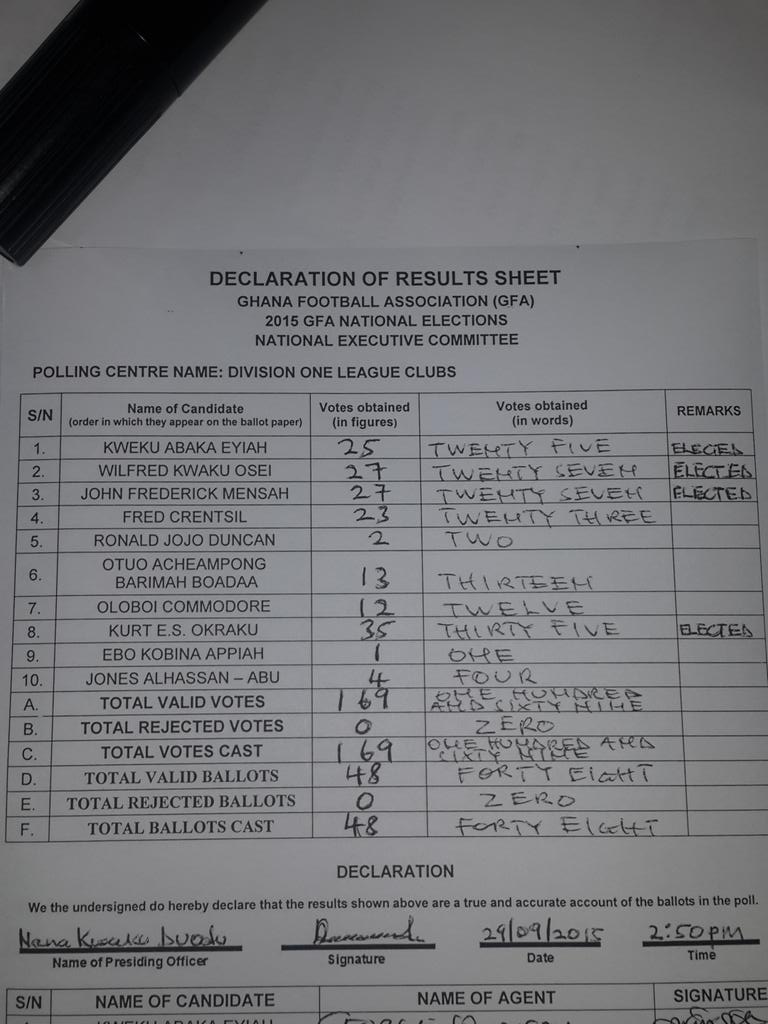 DECLARATION OF RESULTS SHEET
GHANA FOOTBALL ASSOCIATION (GFA)
2015 GFA NATIONAL ELECTIONS
NATIONAL EXECUTIVE COMMITTEE
POLLING CENTRE NAME: DIVISION ONE LEAGUE CLUBS
S/N Name of Candidate (order in which they appear on the ballot paper) Votes obtained (in figures) Votes obtained (in words) REMARKS
1. KWEKU ABAKA EYIAH 25 TWENTY FIVE ELECTED
2. WILFRED KWAKU OSEI 27 TWENTY SEVEN ELECTED
3. JOHN FREDERICK MENSAH 27 TWENTY SEVEN ELECTED
4. FRED CRENTSIL 23 TWENTY THREE
5. RONALD JOJO DUNCAN 2 TWO
6. OTUO ACHEAMPONG BARIMAH BOADAA 13 THIRTEEN
7. OLOBOI COMMODORE 12 TWELVE
8. KURT E.S. OKRAKU 35 THIRTY FIVE ELECTED
9. EBO KOBINA APPIAH 1 ONE
10. JONES ALHASSAN – ABU 4 FOUR
A. TOTAL VALID VOTES 169 ONE HUNDRED AND SIXTY NINE
B. TOTAL REJECTED VOTES 0 ZERO
C. TOTAL VOTES CAST 169 ONE HUNDRED AND SIXTY NINE
D. TOTAL VALID BALLOTS 48 FORTY EIGHT
E. TOTAL REJECTED BALLOTS 0 ZERO
F. TOTAL BALLOTS CAST 48 FORTY EIGHT
DECLARATION
We the undersigned do hereby declare that the results shown above are a true and accurate account of the ballots in the poll.
Nana Kwaku Duodu 29/09/2015 2:50PM
Name of Presiding Officer Signature Date Time
S/N NAME OF CANDIDATE NAME OF AGENT SIGNATURE
KWEKU ABAKA EYIAH